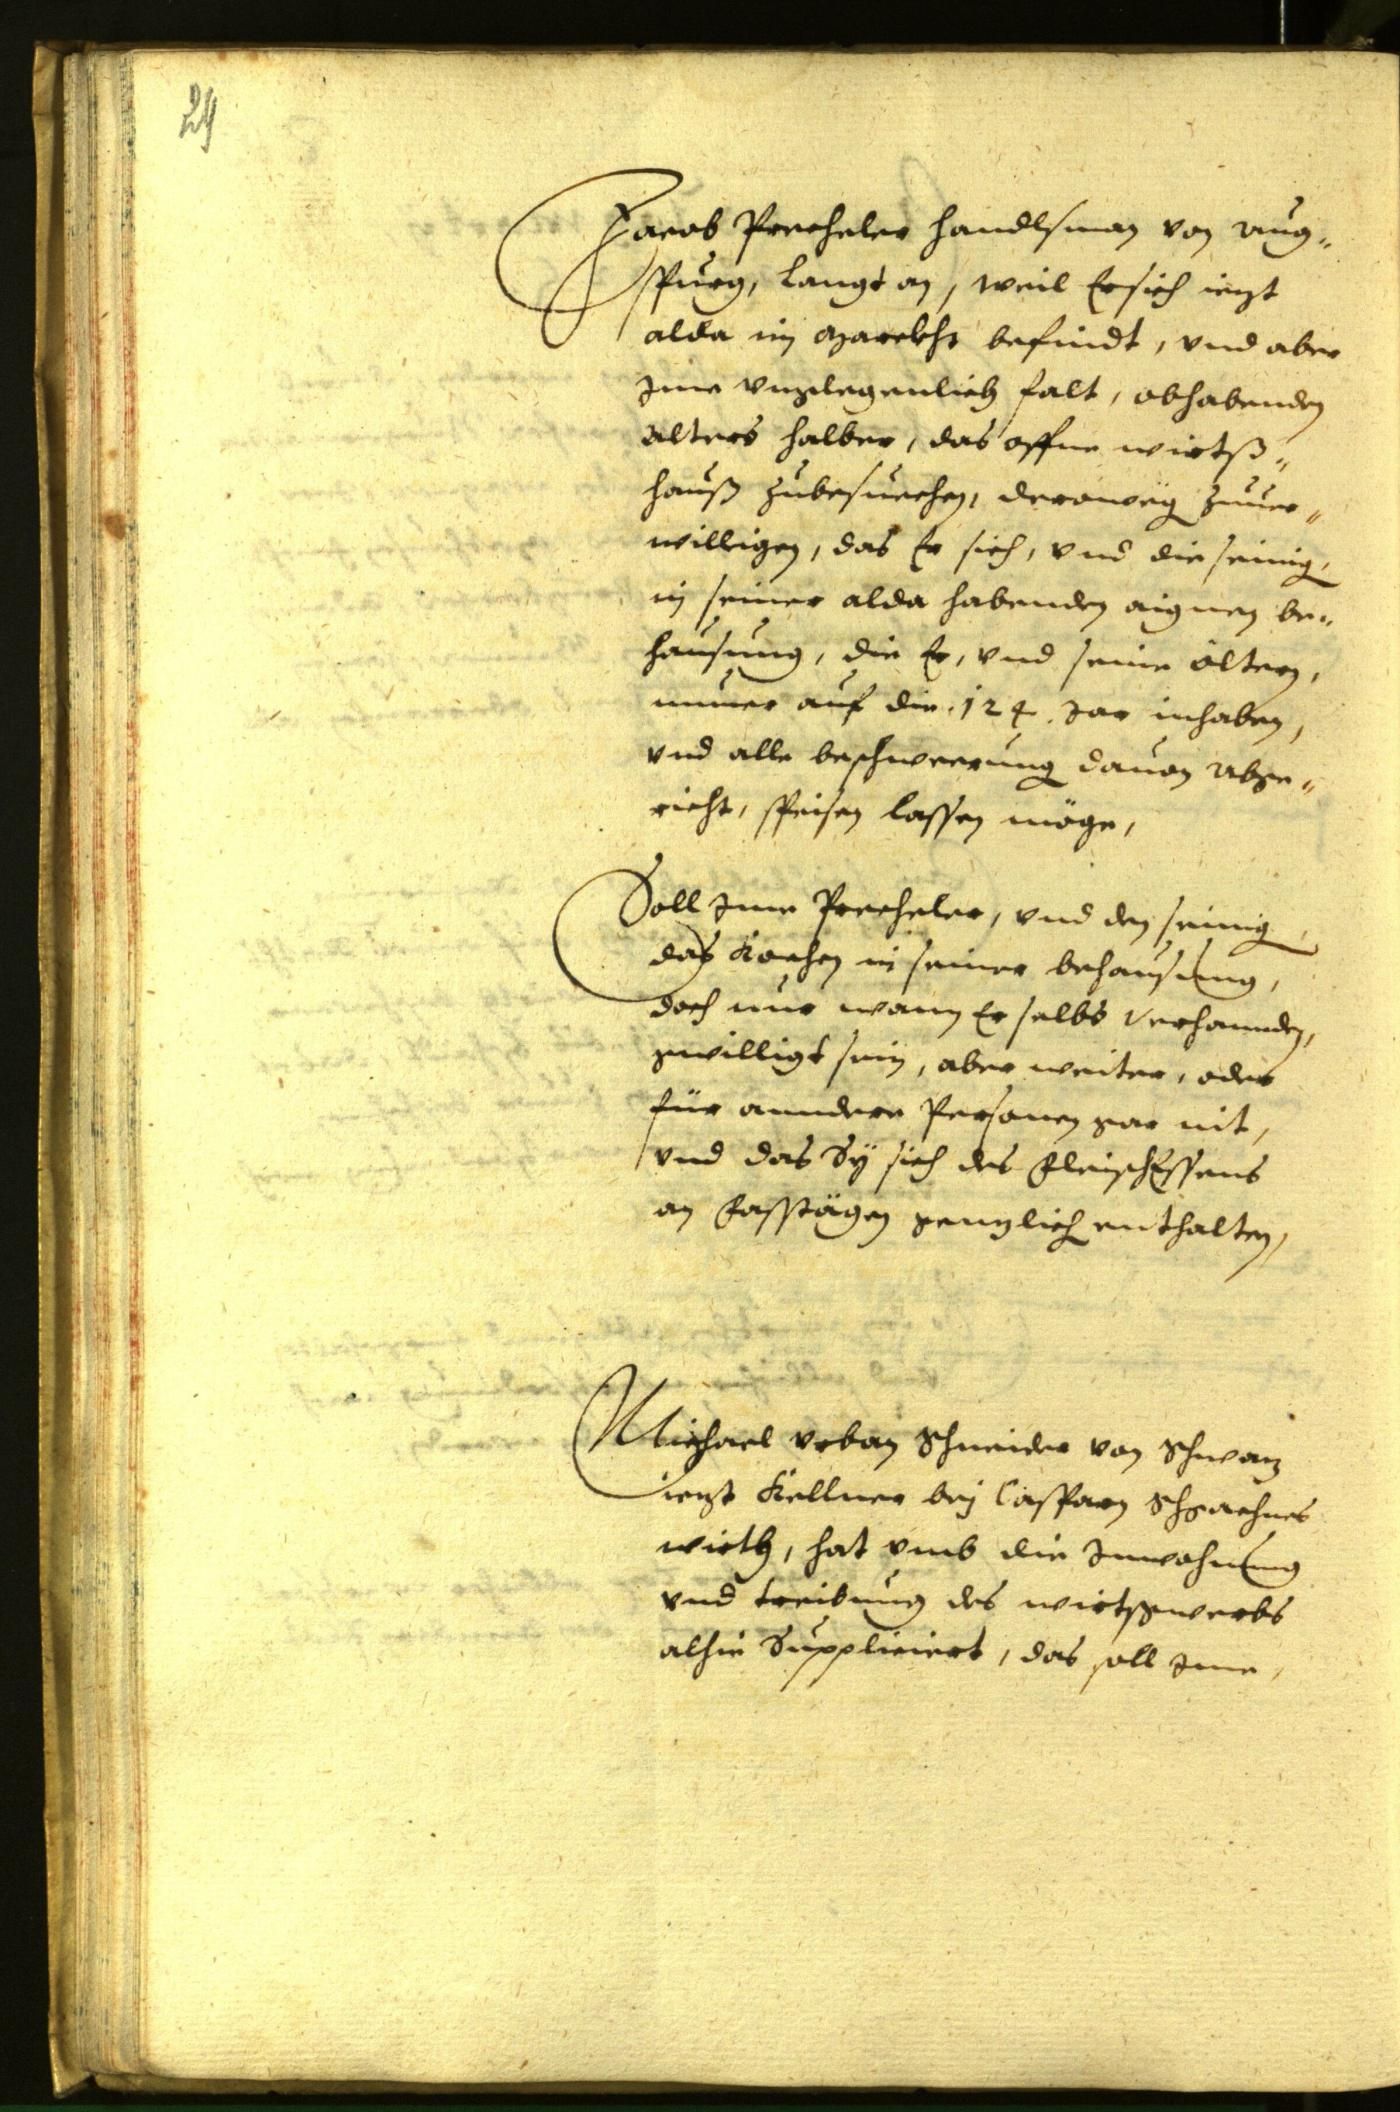 24
Jacob Precheler Handlsman von Aug-
spurg, langt an, weil Er sich iezt
alda im Marckht befindt, vnd aber
Ime vngelegenlich falt, obhabenden
alters halber, das offne wirtß-
hauß zubesuechen, deroweg zuuer-
willigen, das Er sich, vnd die seinig,
in seiner alda habenden aignen be-
hausung, die Er, vnd seine öltern,
nuner auf die 124 Jar inhaben,
vnd alle beschwerung dauon abge-
richt, speisen lassen möge,
Soll Ime Precheler, vnd den seinig
das Kochen in seiner behausung,
doch nur wann Er selbs verhannden,
gwilligt sein, aber weiter, oder
für anndere Personen gar nit,
vnd das Sÿ sich des FleischEssens
an Fasstägen genzlich enthalten,
Michael Vrban Schneider von Schwaz
iezt Kellner beÿ Casparn Schgachnes
wirth, hat vmb die Inwohnung
vnd treibung des wirtsgwerbs
alhie Suppliciert, das soll Ime,